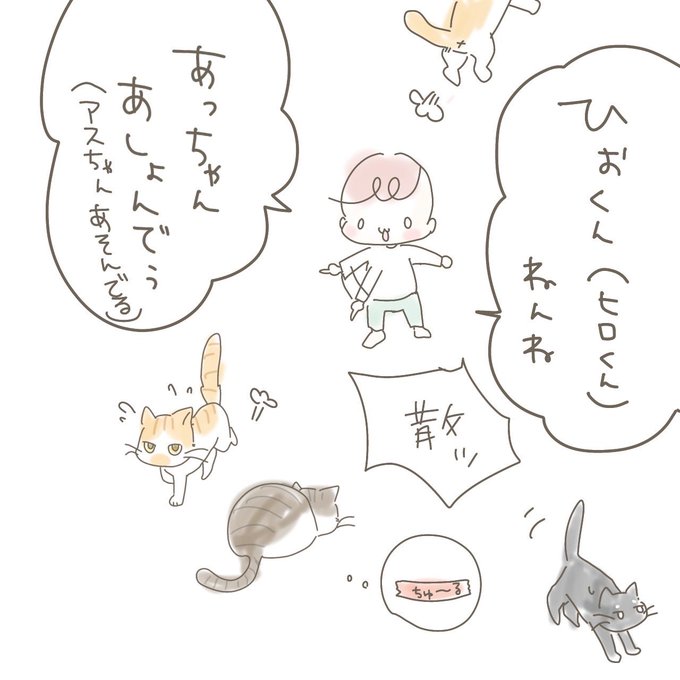 ひおくん(ヒロくん)
ねんね
あっちゃん
あしょんでぅ
(アスちゃんあそんでる)
散ッ
ちゅ〜る